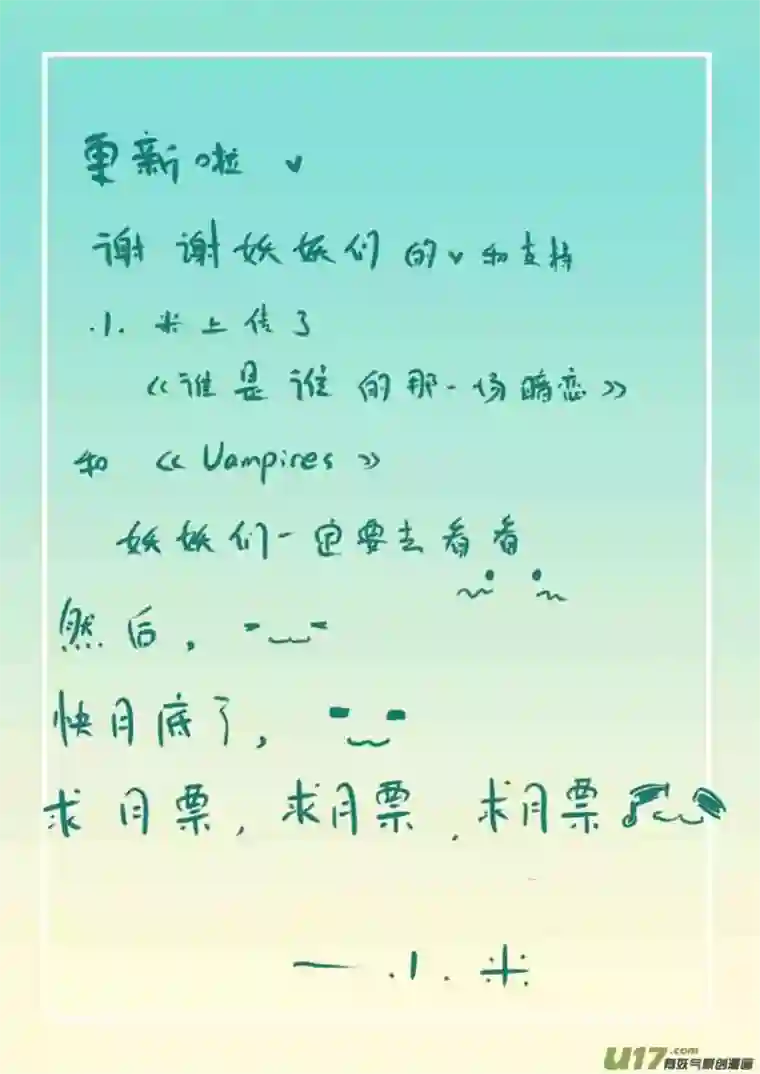 更新啦
谢谢妖妖们的♥和支持
小米上传了
《谁是谁的那一场暗恋》
和《Vampires》
妖妖们一定要去看看
然后,
快月底了,
求月票,求月票,求月票
一小米
U17.com
有妖气原创漫画